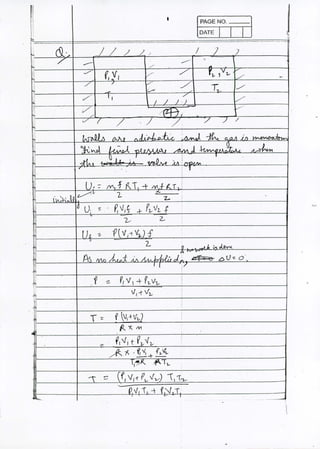 PAGE NO.
DATE
Q.
P₁, V₁
T₁
P₂, V₂
T₂
walls are adiabatic and the gas is monoatomic
find final pressure and temperature when
the valve is open.
Uᵢ = n₁f RT₁ + n₂f RT₂
2 2
initially
Uᵢ = P₁V₁f + P₂V₂ f
2 2
U_f = P(V₁+V₂) f
2
& no work is done
As no heat is supplied, ΔU = 0.
P = P₁V₁ + P₂V₂
V₁+V₂
T = P(V₁+V₂)
R × n
= P₁V₁ + P₂V₂
R × P₁V₁ + P₂V₂
T₁R RT₂
T = (P₁V₁ + P₂V₂) T₁T₂
P₁V₁T₂ + P₂V₂T₁